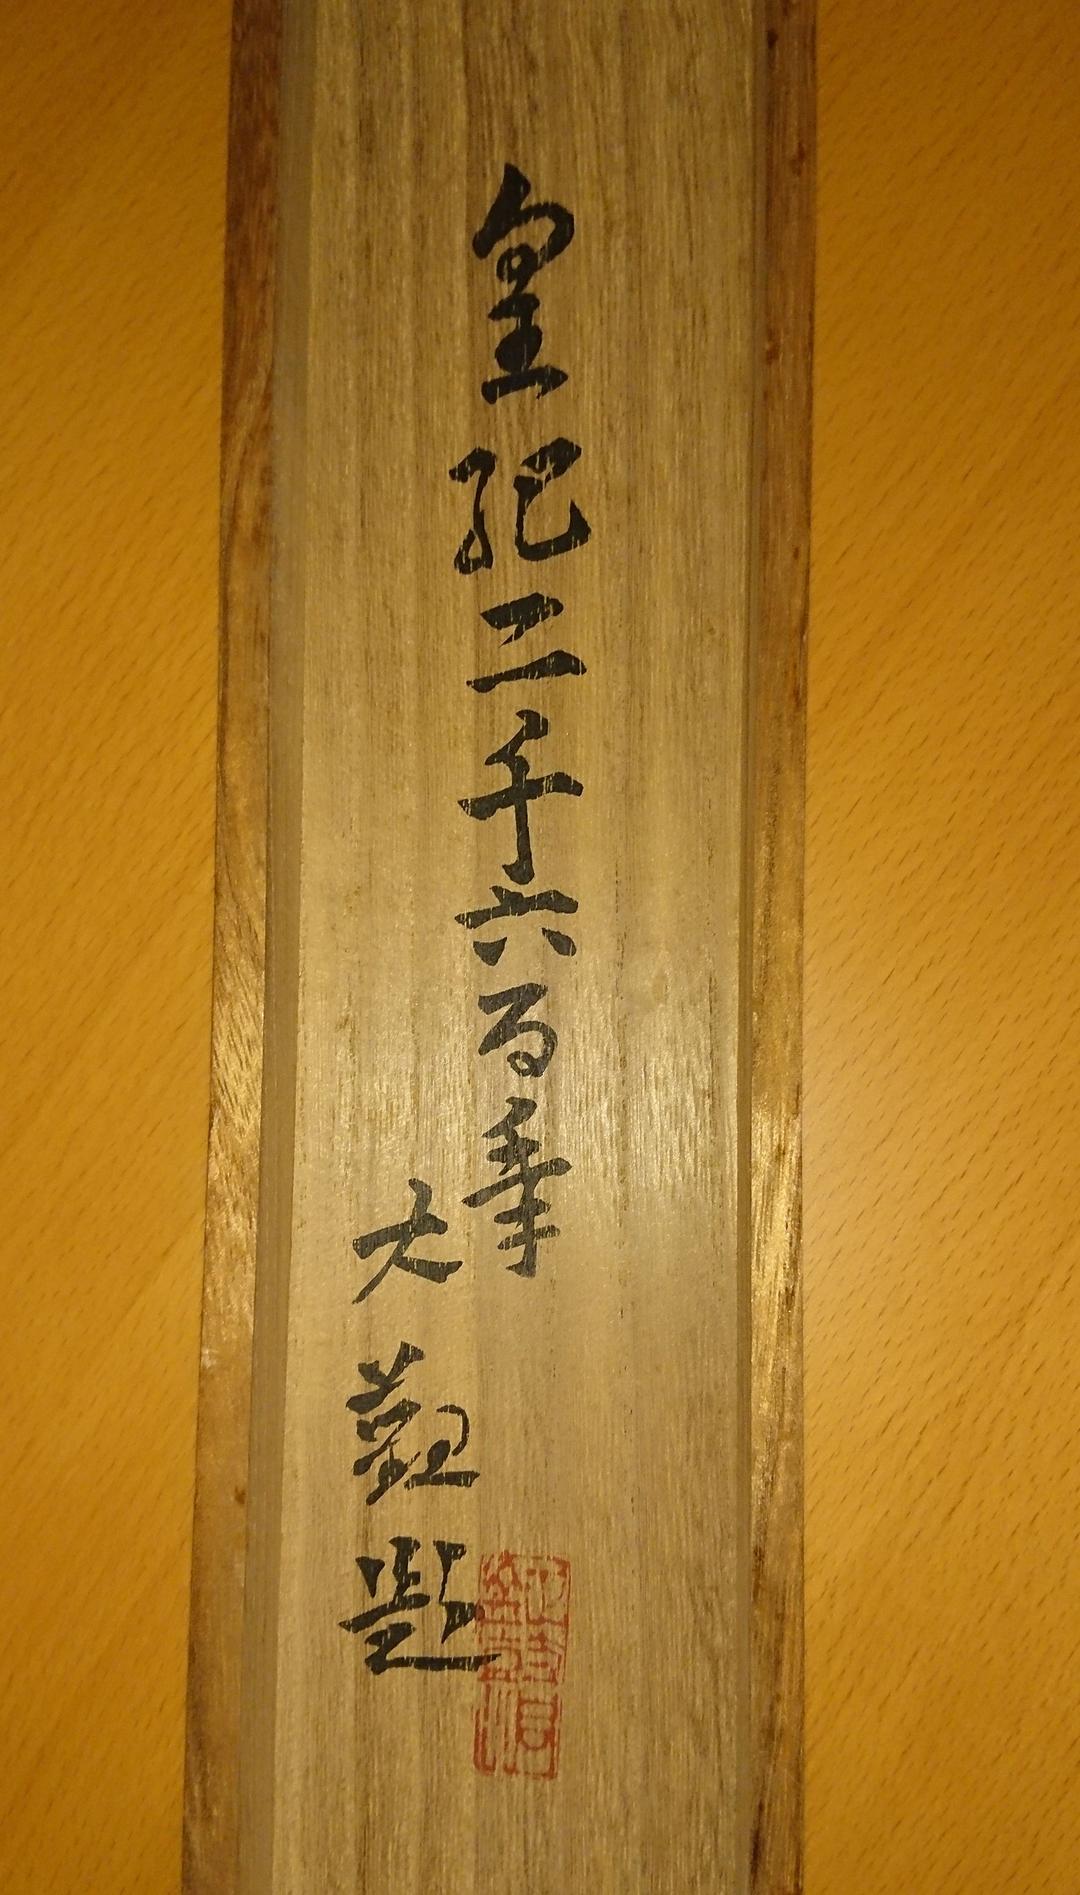 皇紀二千六百年
大觀題